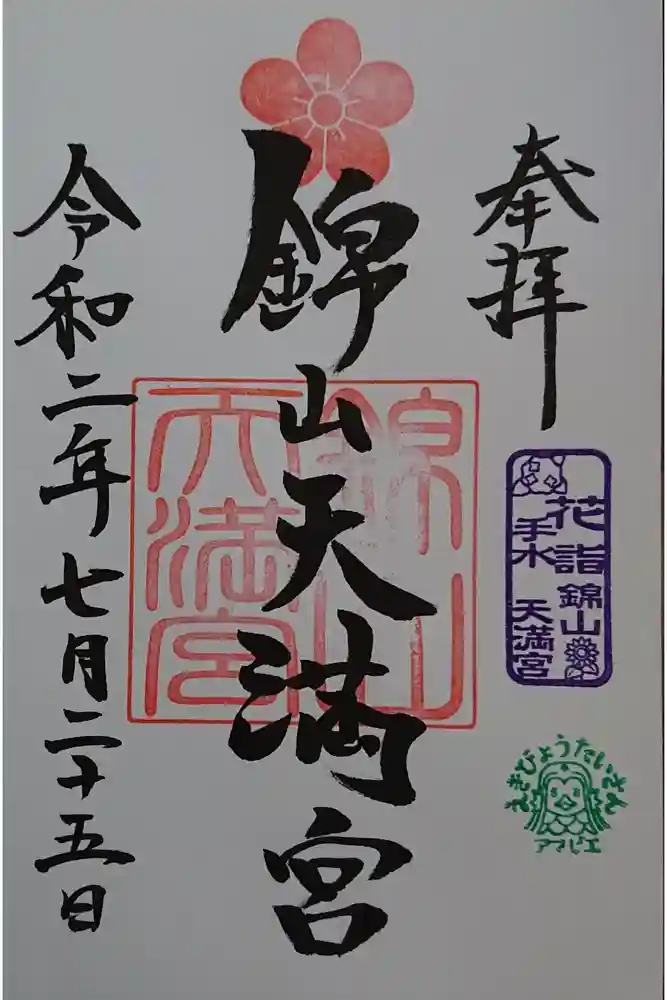 奉拝
花詣
手水
錦山
天満宮
えきびょうたいさん
アマビエ
錦山天満宮
錦山
天満宮
令和二年七月二十五日